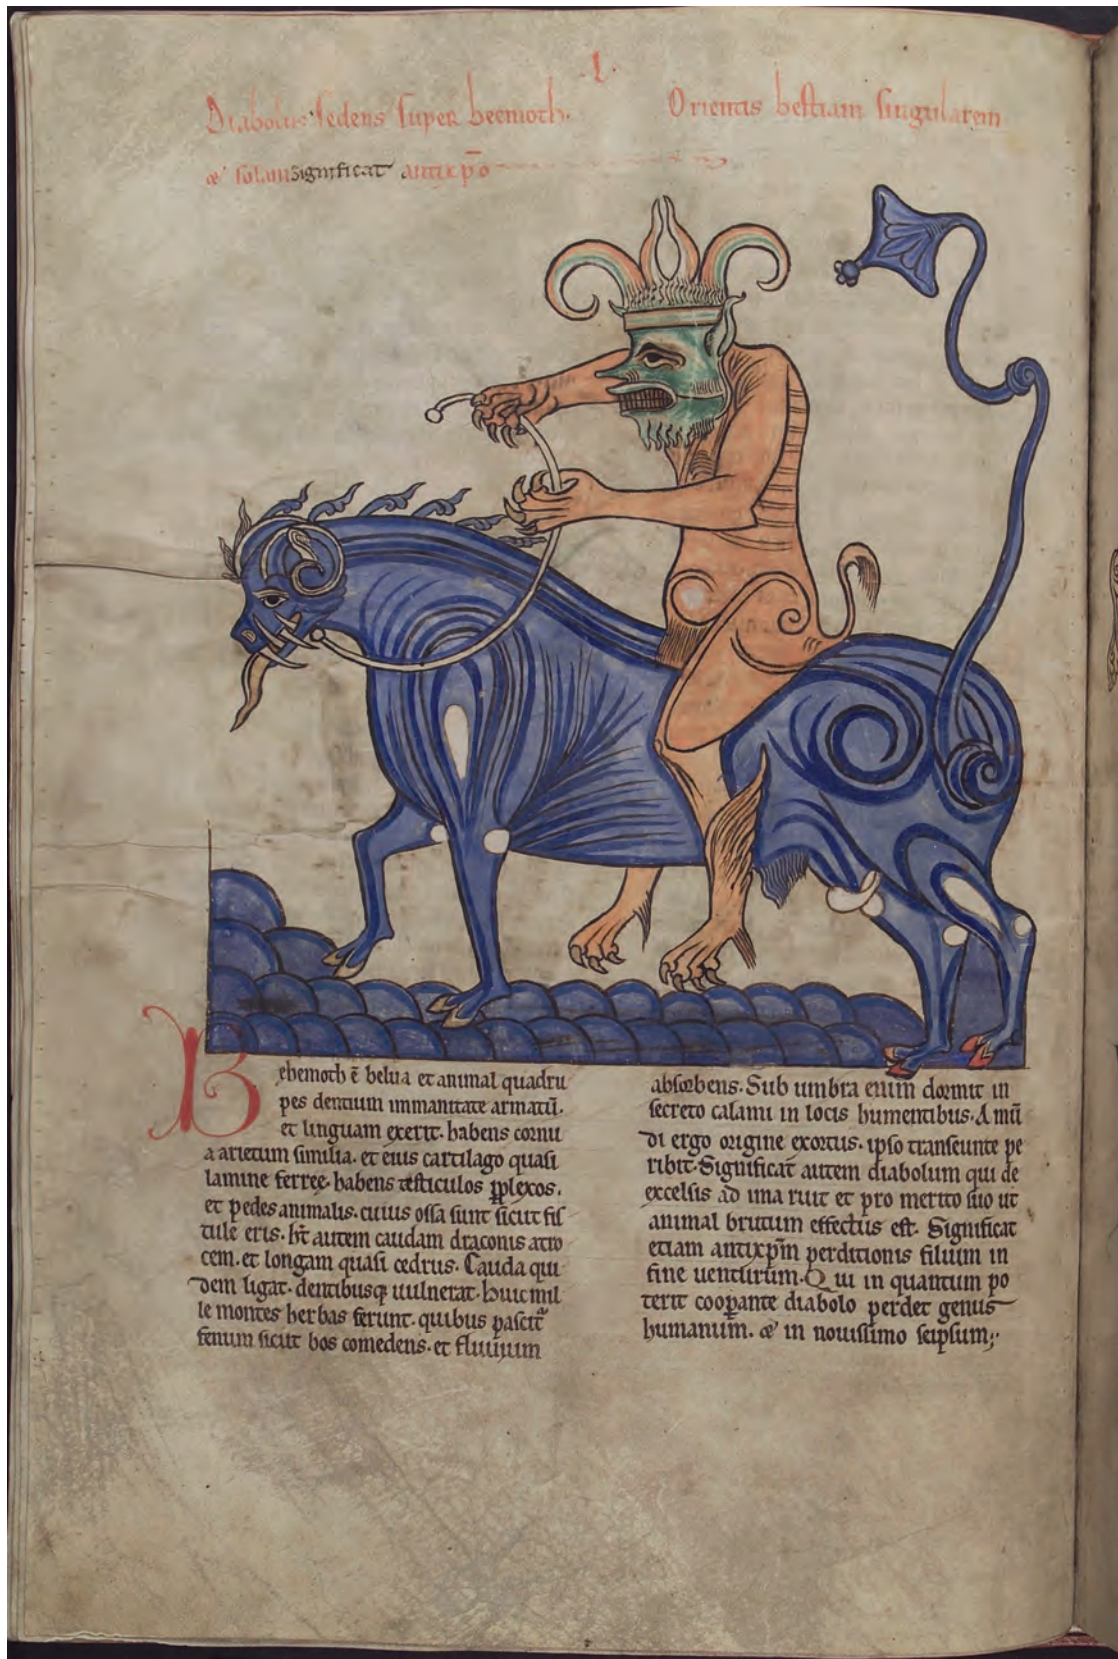 .L.
Diabolus sedens super beemoth. Orientis bestiam singularem
&' solam Significat antixp̄o
Behemoth ē belua et animal quadru
pes dentium immanitate armatū.
et linguam exerit. habens cornu
a arietum similia. et eius cartilago quasi
lamine ferreę. habens testiculos ꝑplexos.
et pedes animalis. cuius ossa sunt sicut fis
tule eris. ht̄ autem caudam draconis atro
cem. et longam quasi cedrus. Cauda qui
dem ligat. dentibusq; uulnerat. huic mil
le montes herbas ferunt. quibus pascit᷑
fenum sicut bos comedens. et fluuium
absorbens. Sub umbra enim dormit in
secreto calami in locis humentibus. A mū
di ergo origine exortus. ipso transeunte pe
ribit. Significat autem diabolum qui de
excelsis ad ima ruit et pro merito suo ut
animal brutum effectus est. Significat
etiam antixp̄m perditionis filium in
fine uenturum. Qui in quantum po
terit cooꝑante diabolo perdet genus
humanum. &' in nouissimo seipsum;